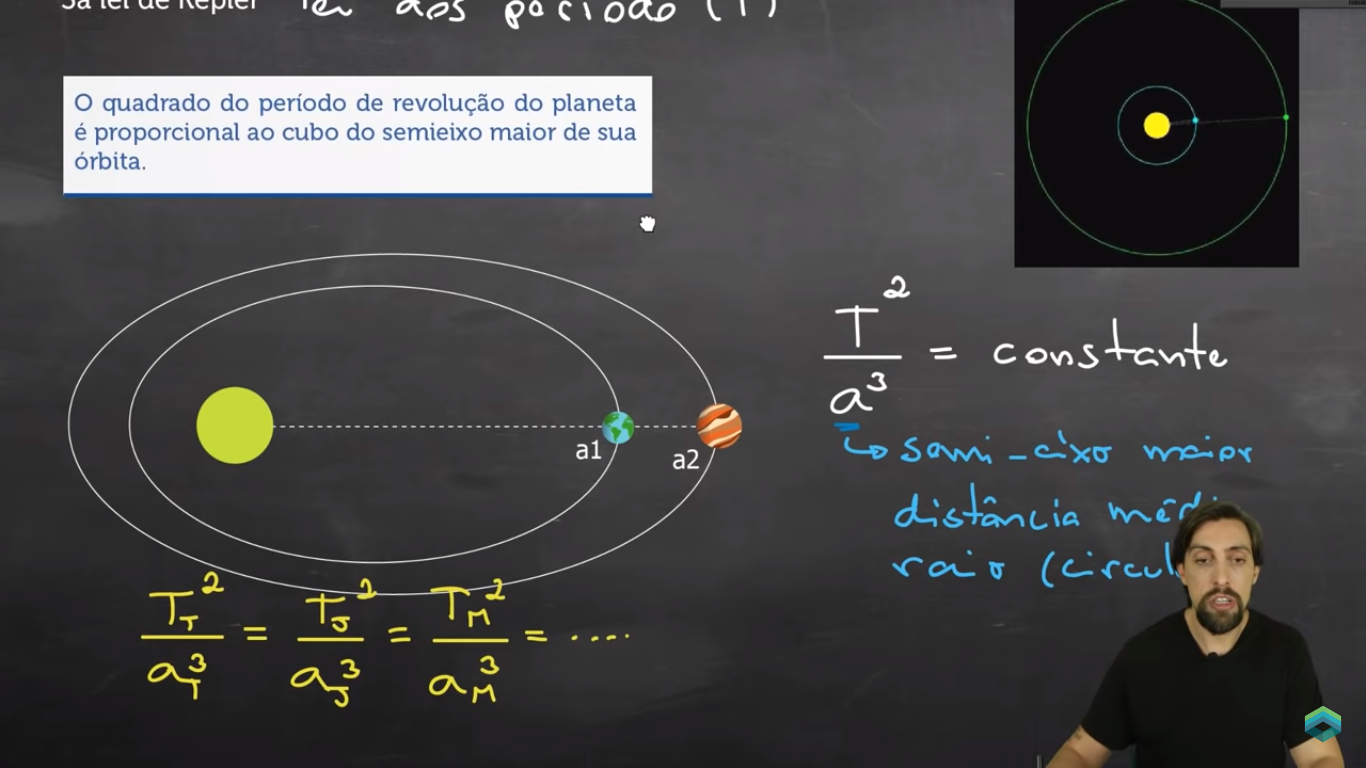 3a lei de Kepler Lei dos período (T)
O quadrado do período de revolução do planeta
é proporcional ao cubo do semieixo maior de sua
órbita.
T² / a³ = constante
a1
a2
↳ semi-eixo maior
distância médi
raio (circul
T_T² / a_T³ = T_J² / a_J³ = T_M² / a_M³ = .....